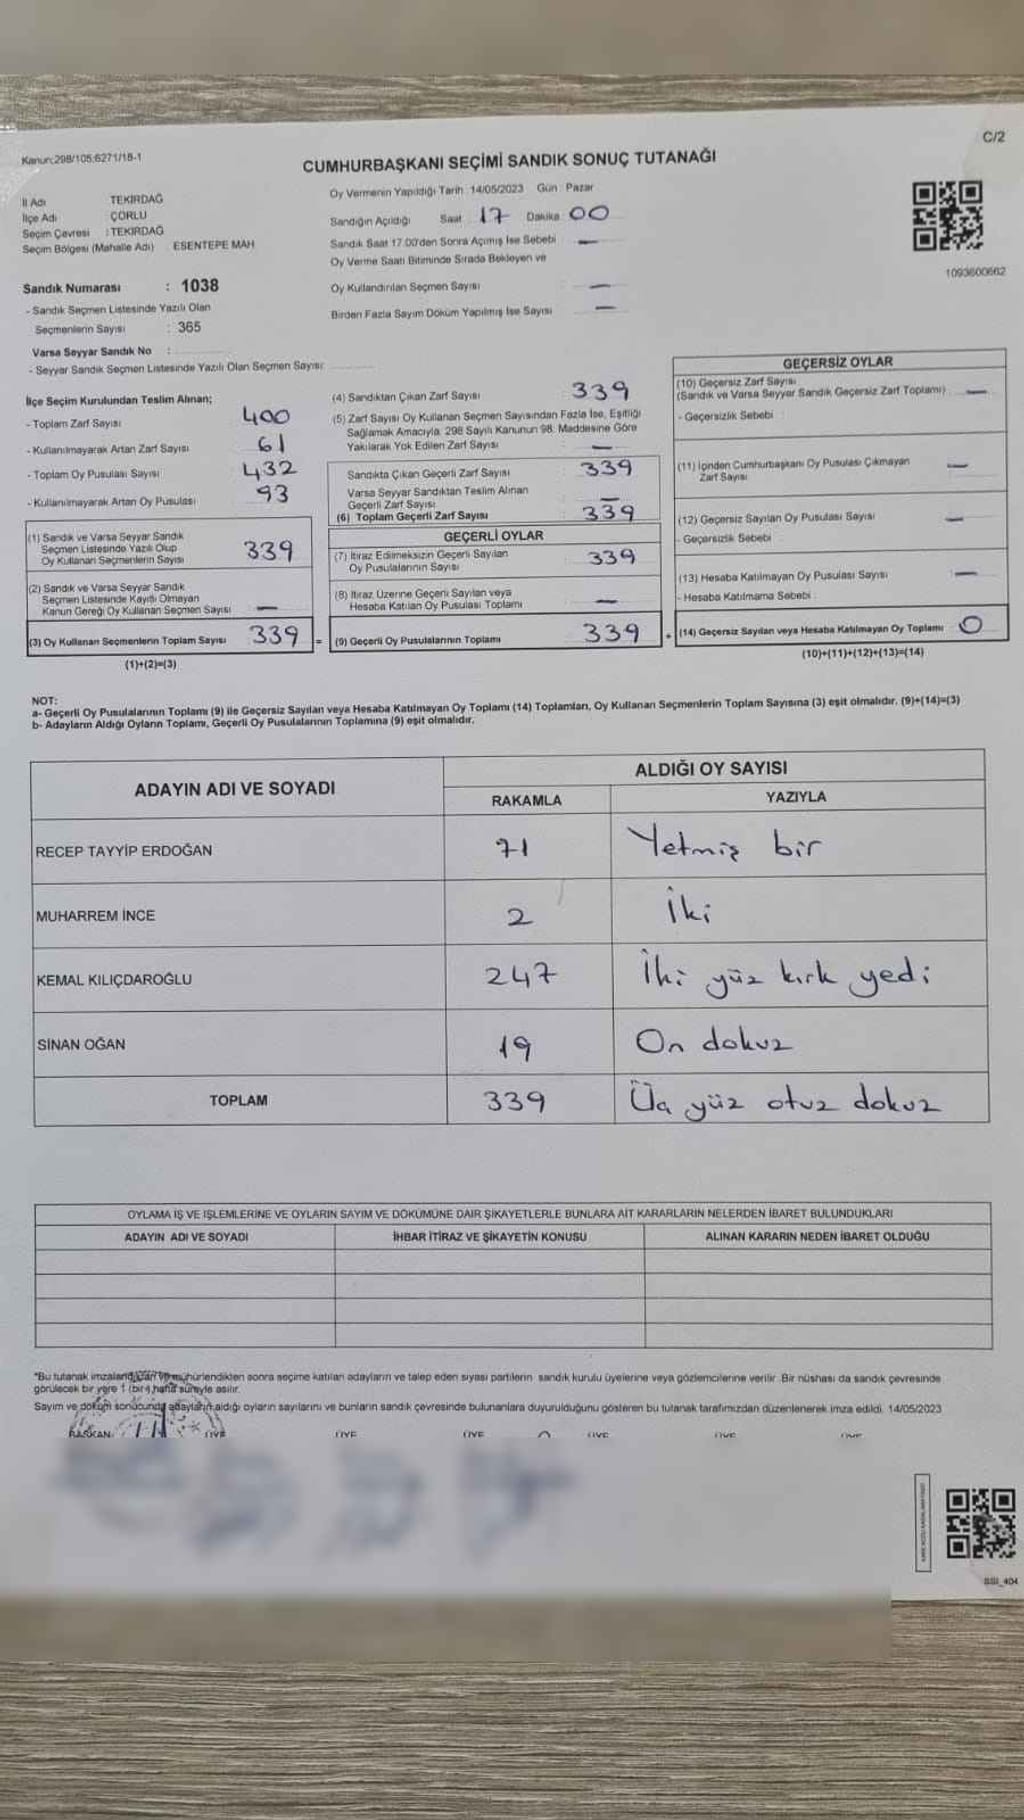 C/2
Kanun:298/105;6271/18-1
CUMHURBAŞKANI SEÇİMİ SANDIK SONUÇ TUTANAĞI
İl Adı TEKİRDAĞ
İlçe Adı ÇORLU
Seçim Çevresi : TEKİRDAĞ
Seçim Bölgesi (Mahalle Adı) ESENTEPE MAH
Oy Vermenin Yapıldığı Tarih 14/05/2023 Gün Pazar
Sandığın Açıldığı Saat 17 Dakika 00
Sandık Saat 17.00'den Sonra Açılmış İse Sebebi —
Oy Verme Saati Bitiminde Sırada Bekleyen ve
Oy Kullandırılan Seçmen Sayısı —
Birden Fazla Sayım Döküm Yapılmış İse Sayısı —
1093600662
Sandık Numarası : 1038
- Sandık Seçmen Listesinde Yazılı Olan
Seçmenlerin Sayısı : 365
Varsa Seyyar Sandık No :
- Seyyar Sandık Seçmen Listesinde Yazılı Olan Seçmen Sayısı:
İlçe Seçim Kurulundan Teslim Alınan;
- Toplam Zarf Sayısı 400
- Kullanılmayarak Artan Zarf Sayısı 61
- Toplam Oy Pusulası Sayısı 432
- Kullanılmayarak Artan Oy Pusulası 93
(1) Sandık ve Varsa Seyyar Sandık
Seçmen Listesinde Yazılı Olup
Oy Kullanan Seçmenlerin Sayısı 339
(2) Sandık ve Varsa Seyyar Sandık
Seçmen Listesinde Kayıtlı Olmayan
Kanun Gereği Oy Kullanan Seçmen Sayısı —
(3) Oy Kullanan Seçmenlerin Toplam Sayısı 339 =
(1)+(2)=(3)
(4) Sandıktan Çıkan Zarf Sayısı : 339
(5) Zarf Sayısı Oy Kullanan Seçmen Sayısından Fazla İse, Eşitliği
Sağlamak Amacıyla, 298 Sayılı Kanunun 98. Maddesine Göre
Yakılarak Yok Edilen Zarf Sayısı —
Sandıkta Çıkan Geçerli Zarf Sayısı 339
Varsa Seyyar Sandıktan Teslim Alınan
Geçerli Zarf Sayısı —
(6) Toplam Geçerli Zarf Sayısı 339
GEÇERLİ OYLAR
(7) İtiraz Edilmeksizin Geçerli Sayılan
Oy Pusulalarının Sayısı 339
(8) İtiraz Üzerine Geçerli Sayılan veya
Hesaba Katılan Oy Pusulası Toplamı —
(9) Geçerli Oy Pusulalarının Toplamı 339 +
GEÇERSİZ OYLAR
(10) Geçersiz Zarf Sayısı
(Sandık ve Varsa Seyyar Sandık Geçersiz Zarf Toplamı) —
- Geçersizlik Sebebi :
(11) İçinden Cumhurbaşkanı Oy Pusulası Çıkmayan
Zarf Sayısı —
(12) Geçersiz Sayılan Oy Pusulası Sayısı —
- Geçersizlik Sebebi :
(13) Hesaba Katılmayan Oy Pusulası Sayısı —
- Hesaba Katılmama Sebebi :
(14) Geçersiz Sayılan veya Hesaba Katılmayan Oy Toplamı 0
(10)+(11)+(12)+(13)=(14)
NOT:
a- Geçerli Oy Pusulalarının Toplamı (9) ile Geçersiz Sayılan veya Hesaba Katılmayan Oy Toplamı (14) Toplamları, Oy Kullanan Seçmenlerin Toplam Sayısına (3) eşit olmalıdır. (9)+(14)=(3)
b- Adayların Aldığı Oyların Toplamı, Geçerli Oy Pusulalarının Toplamına (9) eşit olmalıdır.
ADAYIN ADI VE SOYADI ALDIĞI OY SAYISI
RAKAMLA YAZIYLA
RECEP TAYYİP ERDOĞAN 71 Yetmiş bir
MUHARREM İNCE 2 İki
KEMAL KILIÇDAROĞLU 247 İki yüz kırk yedi
SİNAN OĞAN 19 On dokuz
TOPLAM 339 Üç yüz otuz dokuz
OYLAMA İŞ VE İŞLEMLERİNE VE OYLARIN SAYIM VE DÖKÜMÜNE DAİR ŞİKAYETLERLE BUNLARA AİT KARARLARIN NELERDEN İBARET BULUNDUKLARI
ADAYIN ADI VE SOYADI İHBAR İTİRAZ VE ŞİKAYETİN KONUSU ALINAN KARARIN NEDEN İBARET OLDUĞU
*Bu tutanak imzalandıktan ve mühürlendikten sonra seçime katılan adayların ve talep eden siyasi partilerin sandık kurulu üyelerine veya gözlemcilerine verilir. Bir nüshası da sandık çevresinde
görülecek bir yere 1 (bir) hafta süreyle asılır.
Sayım ve döküm sonucunda adayların aldığı oyların sayılarını ve bunların sandık çevresinde bulunanlara duyurulduğunu gösteren bu tutanak tarafımızdan düzenlenerek imza edildi. 14/05/2023
BAŞKAN ÜYE ÜYE ÜYE ÜYE ÜYE ÜYE
SSI_404